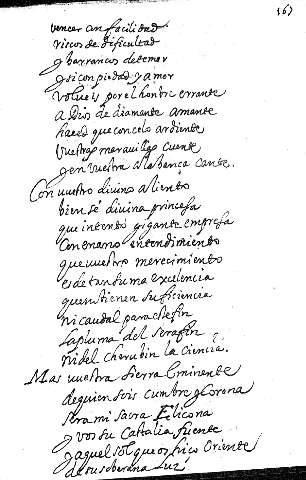 167
vencer con facilidad
riscos de dificultad
y barrancos de temor
y si con piedad y amor
volveis por el hombre errante
a Dios de diamante amante
haced que con celo ardiente
vuestras maravillas cuente
y en vuestra alabança cante.
Con vuestro divino aliento
bien sé divina princesa
que intento gigante empresa
con enano entendimiento
que vuestro merecimiento
es de tan suma excelencia
que no tienen suficiencia
ni caudal para este fin
la pluma del serafin
ni del cherubin la ciencia.
Mas vuestra sierra eminente
de quien sois cumbre y corona
sera mi sacra Elicona
y vos su Castalia fuente
y aquel sol que os hiço oriente
de su soberana luz